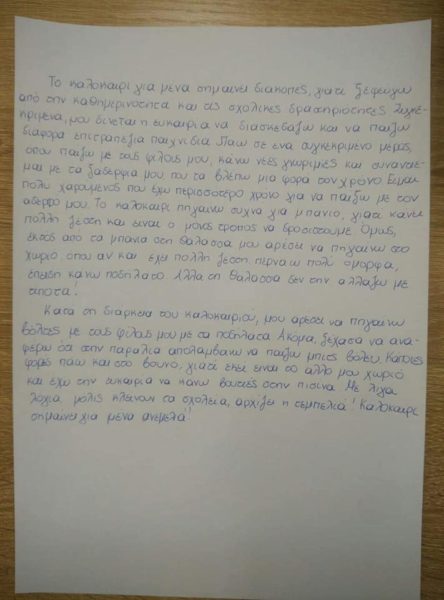 Το καλοκαιρι για μενα σημαινει διακοπες, γιατι ξεφευγω
απο την καθημερινοτητα και τις σχολικες δραστηριοτητες. Συγκε-
κριμενα, μου δινεται η ευκαιρια να διασκεδαζω και να παιζω
διαφορα επιτραπεζια παιχνιδια. Παω σε ενα συγκεκριμενο μερος,
οπου παιζω με τους φιλους μου, κανω νεες γνωριμιες και συναντιε-
μαι με τα ξαδερφια μου, που τα βλεπω μια φορα τον χρονο. Ειμαι
πολυ χαρουμενος που εχω περισσοτερο χρονο για να παιζω με τον
αδερφο μου. Το καλοκαιρι πηγαινω συχνα για μπανιο, γιατι κανει
πολλη ζεστη και ειναι ο μονος τροπος να δροσιστουμε. Ομως,
εκτος απο τα μπανια στη θαλασσα μου αρεσει να πηγαινω στο
χωριο οπου αν και εχει πολλη ζεστη, περναω πολυ ομορφα,
επειδη κανω ποδηλατο. Αλλα τη θαλασσα δεν την αλλαζω με
τιποτα!
Κατα τη διαρκεια του καλοκαιριού, μου αρεσει να πηγαινω
βολτες με τους φιλους μου με τα ποδηλατα. Ακομα, ξεχασα να ανα-
φερω οτι στην παραλια απολαμβανω να παιζω μπιτς βολευ. Καποιες
φορες παω και στο βουνο, γιατι εκει ειναι το αλλο μου χωριο
και εχω την ευκαιρια να κανω βουτιες στην πισινα. Με λιγα
λογια, μολις κλεινουν τα σχολεια, αρχιζει η τεμπελιά! Καλοκαιρι
σημαινει για μενα ανεμελιά!